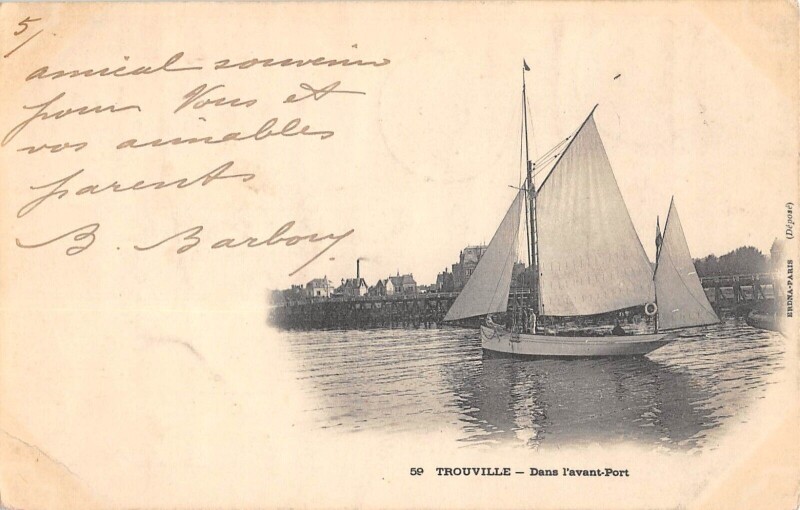 5/
amical souvenir
pour Vous et
vos aimables
parents
B. Barbory
59 TROUVILLE — Dans l'avant-Port
ERDNA-PARIS (Déposé)